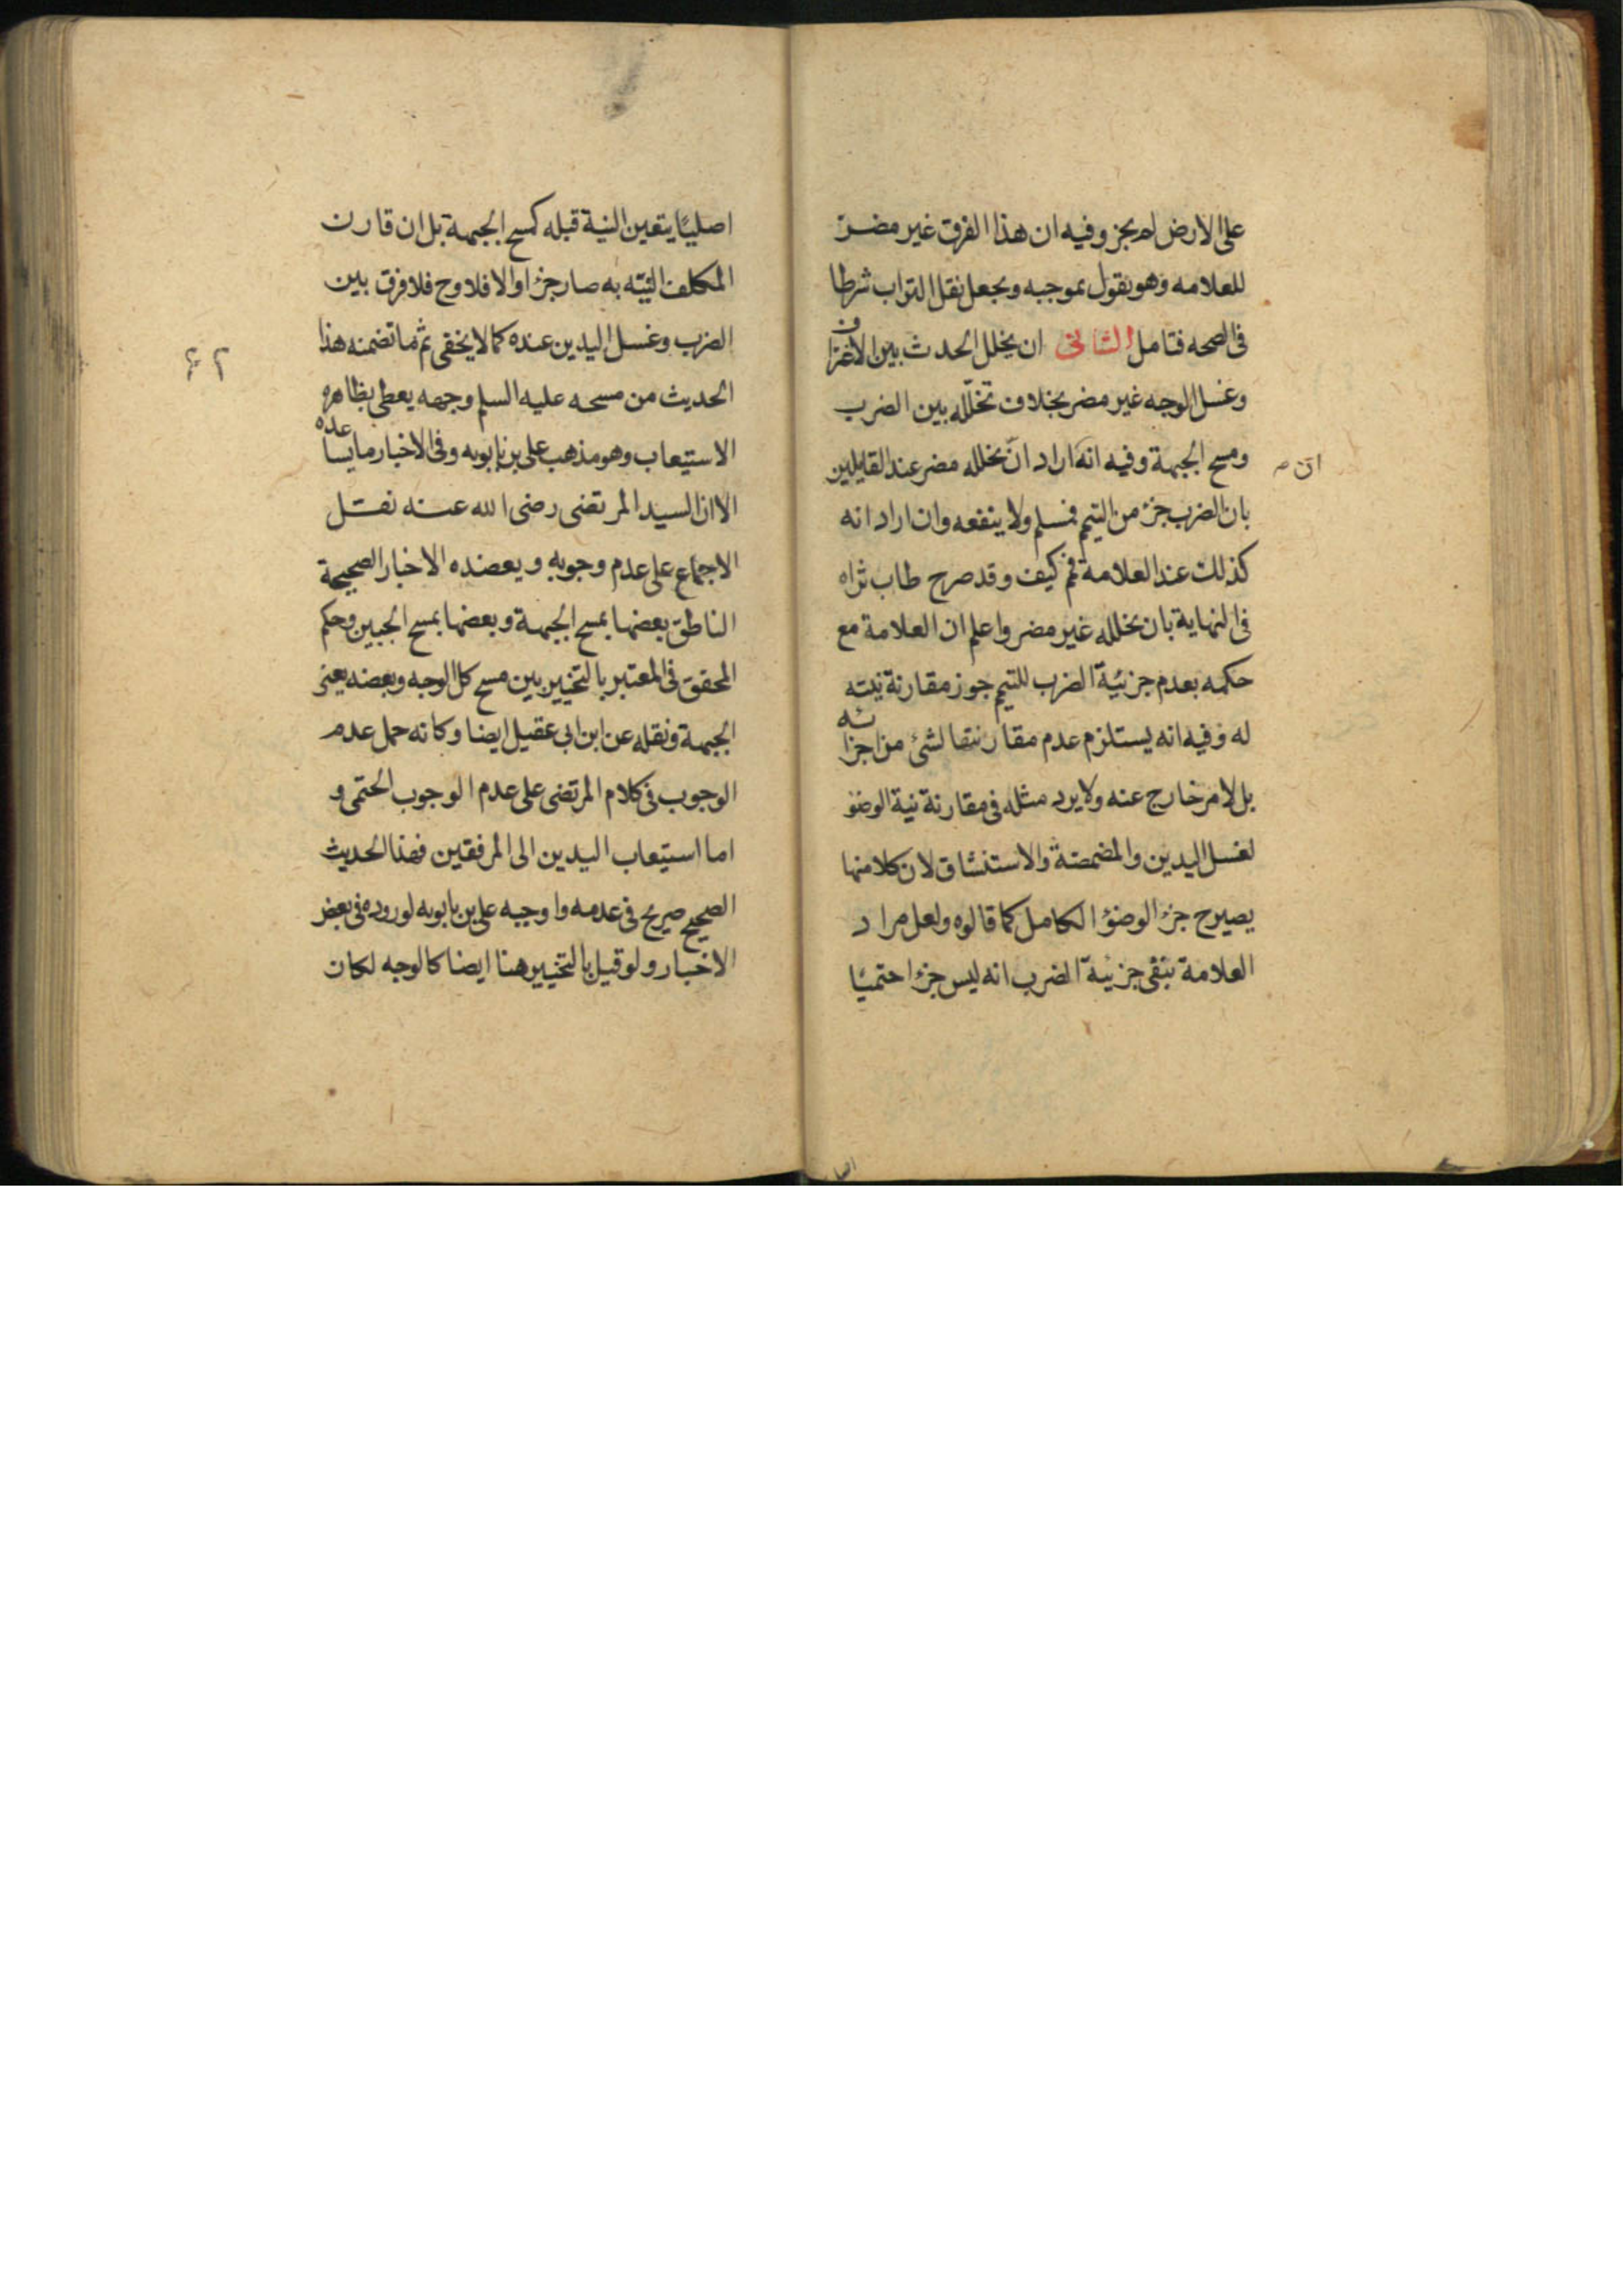 على الارض لم يجز وفيه ان هذا الفرق غير مضر
للعلامه وهو يقول بموجبه ويجعل نقل التراب شرطا
فى الصحه فتامل الثانى ان تخلل الحدث بين الاغتراف
وغسل الوجه غير مضر بخلاف تخلّله بين الضرب
ومسح الجبهة وفيه انه اراد انّ تخلله مضر عند القايلين
بان الضرب جزء من التيمم فمسلم ولا ينفعه وان اراد انه
كذلك عند العلامة فم كيف وقد صرح طاب ثراه
فى النهاية بان تخلله غير مضر واعلم ان العلامة مع
حكمه بعدم جزئية الضرب للتيمم جوز مقارنة نيته
له وفيه انه يستلزم عدم مقارنتها لشئ من اجزائه
بل لامر خارج عنه ولا يرد مثله فى مقارنة نية الوضؤ
لغسل اليدين والمضمضة والاستنشاق لان كلا منها
يصيرح جزء الوضؤ الكامل كما قالوه ولعل مراد
العلامة بنفى جزئية الضرب انه ليس جزءا حتميّا
اصليّا يتعين النية قبله كمسح الجبهة بل ان قارن
المكلف النيّه به صار جزءا والا فلا وح فلا فرق بين
الضرب وغسل اليدين عنده كما لا يخفى ثم ما تضمنه هذا
الحديث من مسحه عليه السلم وجهه يعطى بظاهره
الاستيعاب وهو مذهب على بن بابويه وفى الاخبار ما يساعده
الا ان السيد المرتضى رضى الله عنه نقل
الاجماع على عدم وجوبه ويعضده الاخبار الصحيحة
الناطق بعضها بمسح الجبهة وبعضها بمسح الجبين وحكم
المحقق فى المعتبر بالتخيير بين مسح كل الوجه وبعضه يعنى
الجبهة ونقله عن ابن ابى عقيل ايضا وكانه حمل عدم
الوجوب فى كلام المرتضى على عدم الوجوب الحتمى و
اما استيعاب اليدين الى المرفقين فهذا الحديث
الصحيح صريح فى عدمه واوجبه على بن بابويه لوروده فى بعض
الاخبار ولو قيل بالتخيير هنا ايضا كالوجه لكان